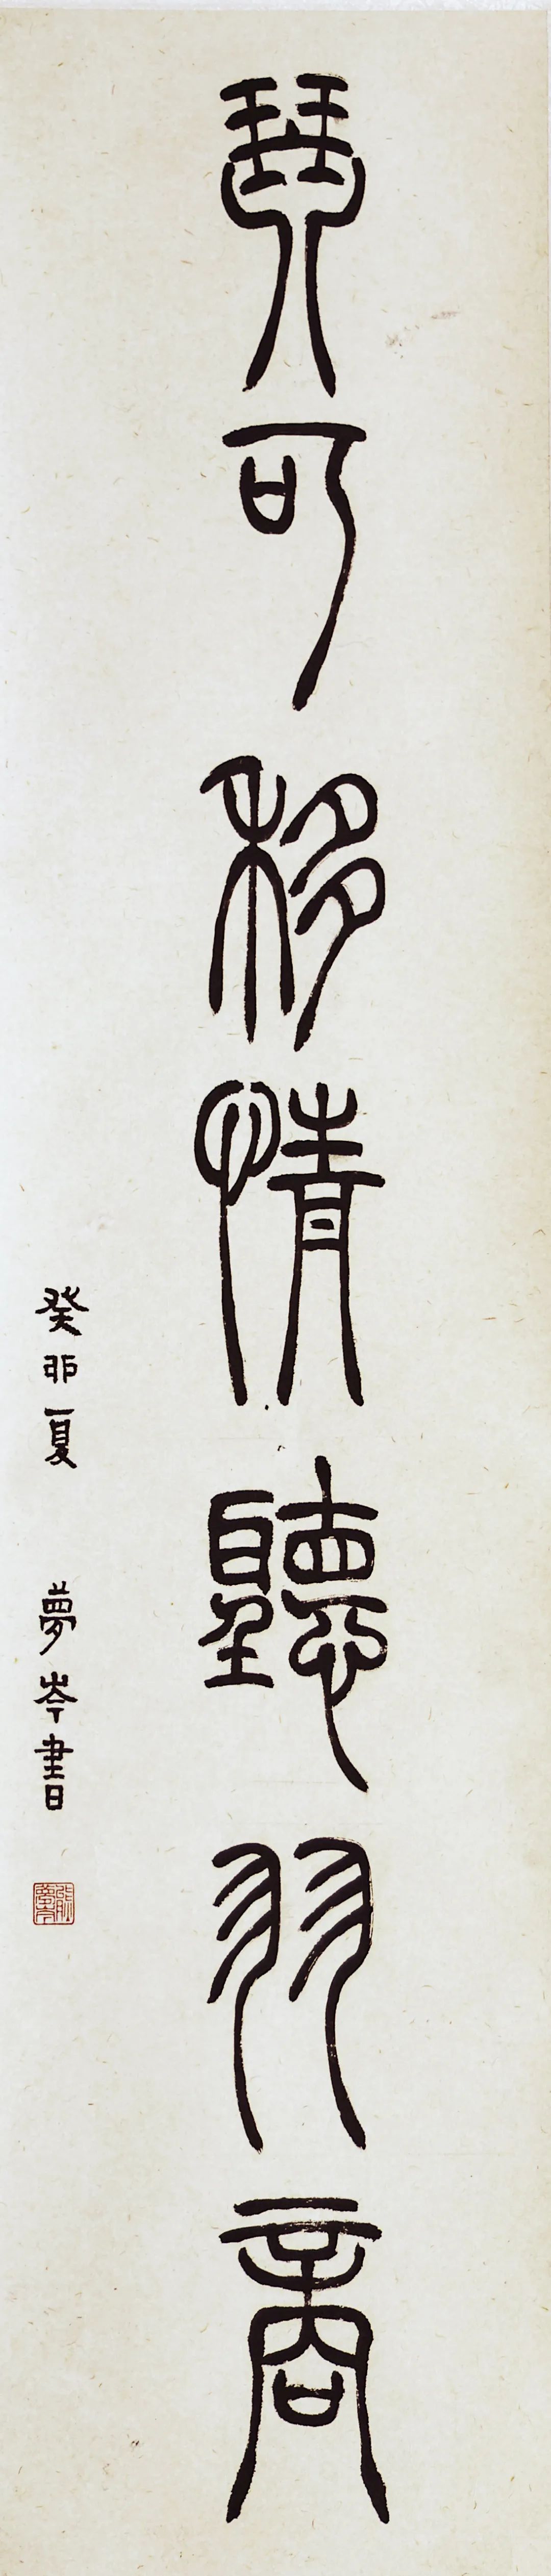 琴可移情聽羽商
癸卯夏 夢岑書